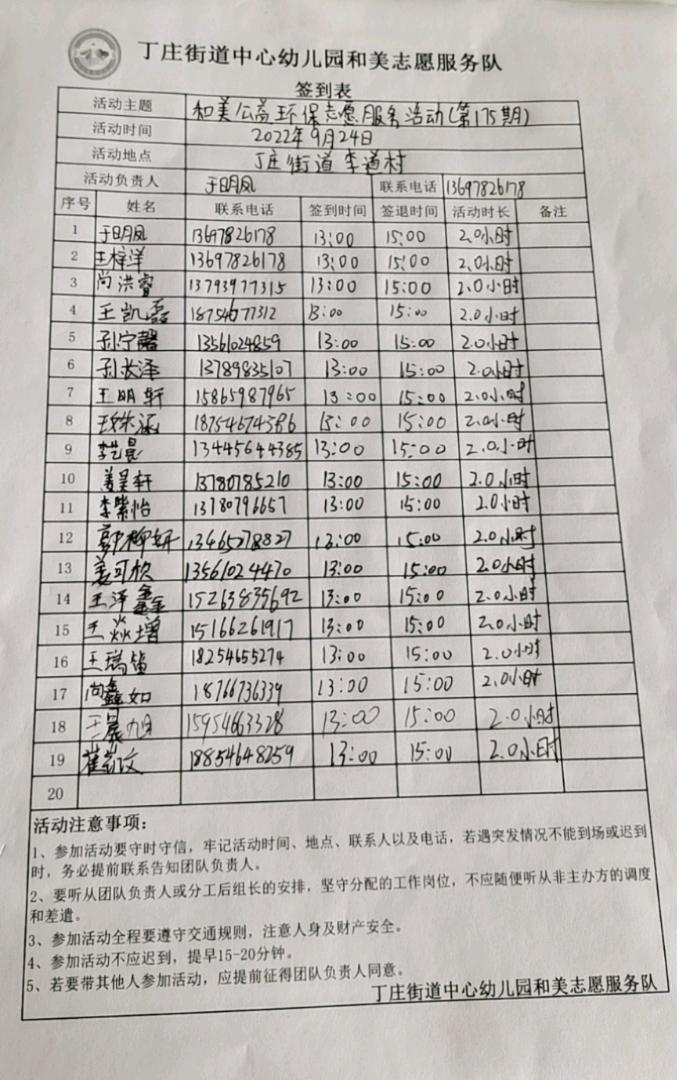 丁庄街道中心幼儿园和美志愿服务队
签到表
活动主题 和美公益环保志愿服务活动(第175期)
活动时间 2022年9月24日
活动地点 丁庄街道李道村
活动负责人 于明凤 联系电话 13697826178
序号 姓名 联系电话 签到时间 签退时间 活动时长 备注
1 于明凤 13697826178 13:00 15:00 2.0小时
2 王梓洋 13697826178 13:00 15:00 2.0小时
3 尚洪睿 13793977315 13:00 15:00 2.0小时
4 王凯磊 18754677312 13:00 15:00 2.0小时
5 孙宁馨 13561024859 13:00 15:00 2.0小时
6 孙长泽 13789835107 13:00 15:00 2.0小时
7 王明轩 15865987965 13:00 15:00 2.0小时
8 18754674386 13:00 15:00 2.0小时
9 李艺晨 13445644385 13:00 15:00 2.0小时
10 姜昊轩 13780785210 13:00 15:00 2.0小时
11 李紫怡 13780796657 13:00 15:00 2.0小时
12 郭柳妍 13465278827 13:00 15:00 2.0小时
13 姜可欣 13561024470 13:00 15:00 2.0小时
14 王泽鑫 15263835692 13:00 15:00 2.0小时
15 王焱增 15166261917 13:00 15:00 2.0小时
16 王瑞笛 18254655274 13:00 15:00 2.0小时
17 尚鑫如 18766736339 13:00 15:00 2.0小时
18 于晨旭 15954663328 13:00 15:00 2.0小时
19 18854648259 13:00 15:00 2.0小时
20
活动注意事项：
1、参加活动要守时守信，牢记活动时间、地点、联系人以及电话，若遇突发情况不能到场或迟到
时，务必提前联系告知团队负责人。
2、要听从团队负责人或分工后组长的安排，坚守分配的工作岗位，不应随便听从非主办方的调度
和差遣。
3、参加活动全程要遵守交通规则，注意人身及财产安全。
4、参加活动不应迟到，提早15-20分钟。
5、若要带其他人参加活动，应提前征得团队负责人同意。
丁庄街道中心幼儿园和美志愿服务队